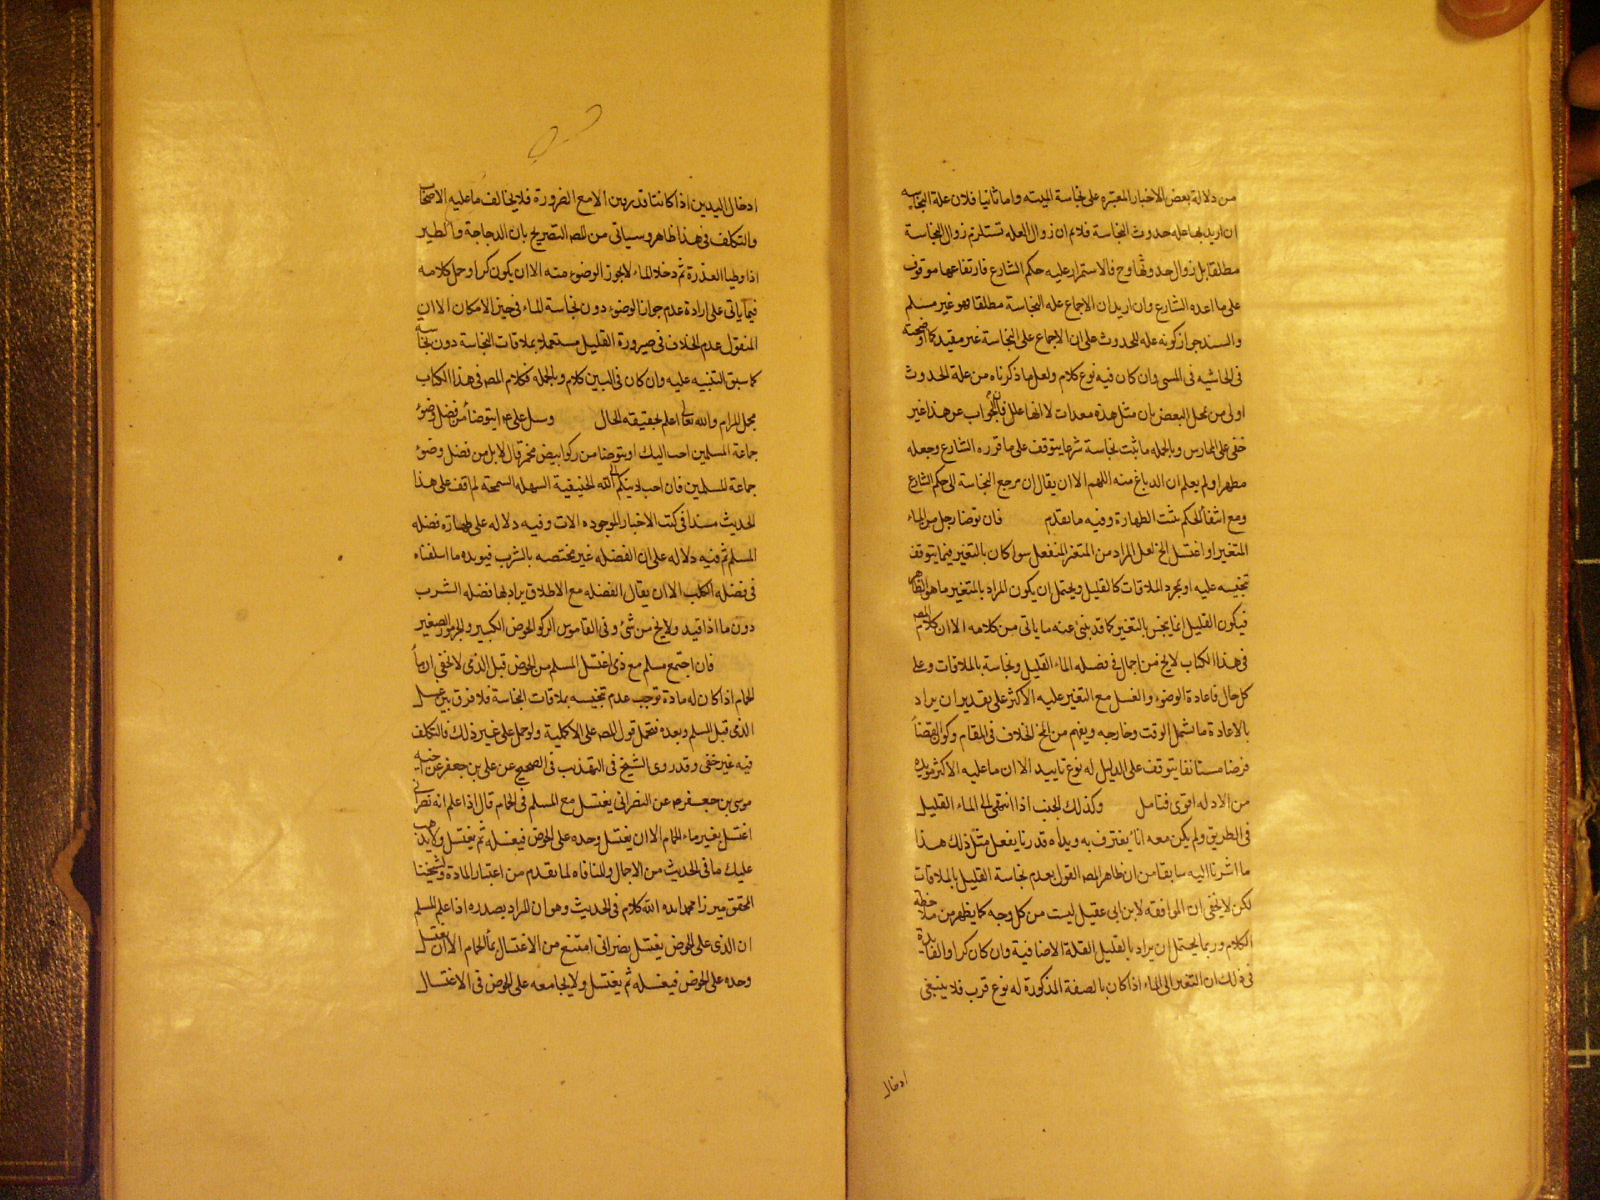 من دلالة بعض الاخبار المعتبره على نجاسة الميته واما ثانيا فلان علة النجاسه
ان اريد بها عله حدوث النجاسة فلا نم ان زوال العله تستلزم زوال النجاسة
مطلقا بل زوال حدوثها وح فالاستمرار عليه حكم الشارع فارتفاعها موقوف
على ما اعده الشارع وان اريد ان الاجماع عله النجاسة مطلقا فهو غير مسلم
والسند جواز كونه عله للحدوث على ان الاجماع على النجاسة غير مقيد كما اوضحته
فى الحاشيه فى المسى وان كان فيه نوع كلام ولعل ما ذكرناه من علة الحدوث
اولى من تمحل البعض بان مثل هذه معدات لا انها علل فان الجواب عن هذا غير
خفى على الممارس وبالجمله ما ثبت نجاسة شرعا يتوقف على ما قرره الشارع وجعله
مطهرا ولم يعلم ان الدباغ منه اللهم الا ان يقال ان مرجع النجاسة الى حكم الشارع
ومع انتفاء الحكم يثبت الطهارة وفيه ما تقدم فان توضا رجل من الماء
المتغير او اغتسل الخ لعل المراد من المتغير المنفعل سوا كان بالتغير فيما يتوقف
تنجيسه عليه او بمجرد الملاقات كالقليل ويحتمل ان يكون المراد بالمتغير ما هو الظاهر
فيكون القليل انما ينجس بالتغير كما قد ينبئ عنه ما ياتى من كلامه الا ان كلام المص
فى هذا الكتاب لا يخ من اجمال فى فضله الماء القليل ونجاسة بالملاقات وعلى
كل حال فاعادة الوضوء والغسل مع التغير عليه الاكثر على تقدير ان يراد
بالاعادة ما يشمل الوقت وخارجه ويفهم من الخ الخلاف فى المقام وكون القضاء
فرضا مستانفا يتوقف على الدليل له نوع تاييد الا ان ما عليه الاكثر مويده
من الادله اقوى فتامل وكذلك الجنب اذا انتهى الى الماء القليل
فى الطريق ولم يكن معه اناء يغترف به ويداه قذرتا يفعل مثل ذلك هذا
ما اشرنا اليه سابقا من ان ظاهر المص القول بعدم نجاسة القليل بالملاقات
لكن لا يخفى ان الموافقه لابن ابى عقيل ليست من كل وجه كما يظهر من ملاحظه
الكلام وربما يحتمل ان يراد بالقليل القلة الاضافية وان كان كرا والفايدة
فى ذلك ان التغير الى الماء اذا كان بالصفة المذكورة له نوع قرب فلا ينبغى
ادخال
ادخال اليدين اذا كانتا قذرتين الا مع الضرورة فلا يخالف ما عليه الاصحاب
والتكلف فى هذا ظاهر وسياتى من المص التصريح بان الدجاجة والطير
اذا وطيا العذرة ثم دخلا الماء لا يجوز الوضوء منه الا ان يكون كرا وحمل كلامه
فيما ياتى على ارادة عدم جواز الوضوء دون نجاسة الماء فى حيز الامكان الا ان
المنقول عدم الخلاف فى صيرورة القليل مستعملا بملاقات النجاسة دون نجاسه
كما سبق التنبيه عليه وان كان فى البين كلام وبالجمله فكلام المص فى هذا الكتاب
مجمل المرام والله تعالى اعلم بحقيقه الحال وسئل على ع ايتوضأ من فضل وضوء
جماعة المسلمين احب اليك او يتوضا من ركو ابيض مخمر قال لا بل من فضل وضوء
جماعة المسلمين فان احب دينكم الى الله الحنيفية السهله السمحة لم اقف على هذا
الحديث مسندا فى كتب الاخبار الموجوده الان وفيه دلاله على طهارة فضله
المسلم ثم فيه دلاله على ان الفضله غير مختصه بالشرب فيويده ما اسلفناه
فى فضله الكلب الا ان يقال الفضله مع الاطلاق يراد بها فضله الشرب
دون ما اذا قيد ولا يخ من شئ وفى القاموس الركو الحوض الكبير والجرموز الصغير
فان اجتمع مسلم مع ذى اغتسل المسلم من الحوض قبل الذى لا يخفى ان ماء
الحمام اذا كان له مادة توجب عدم تنجيسه بملاقات النجاسة فلا فرق بين غسل
الذى قبل المسلم وبعده فيحمل قول المص على الاكملية ولو حمل على غير ذلك فالتكلف
فيه غير خفى وقد روى الشيخ فى التهذيب فى الصحيح عن على بن جعفر عن اخيه
موسى بن جعفر ع عن النصرانى يغتسل مع المسلم فى الحمام قال اذا علم انه نصرانى
اغتسل بغير ماء الحمام الا ان يغتسل وحده على الحوض فيغسله ثم يغتسل ولا يذهب
عليك ما فى الحديث من الاجمال والمنافاه لما تقدم من اعتبار المادة ولشيخنا
المحقق ميرزا محمد ايده الله كلام فى الحديث وهو ان المراد بصدره اذا علم المسلم
ان الذى على الحوض يغتسل نصرانى امتنع من الاغتسال بماء الحمام الا ان يغتسل
وحده على الحوض فيغسله ثم يغتسل ولا يجامعه على الحوض فى الاغتسال